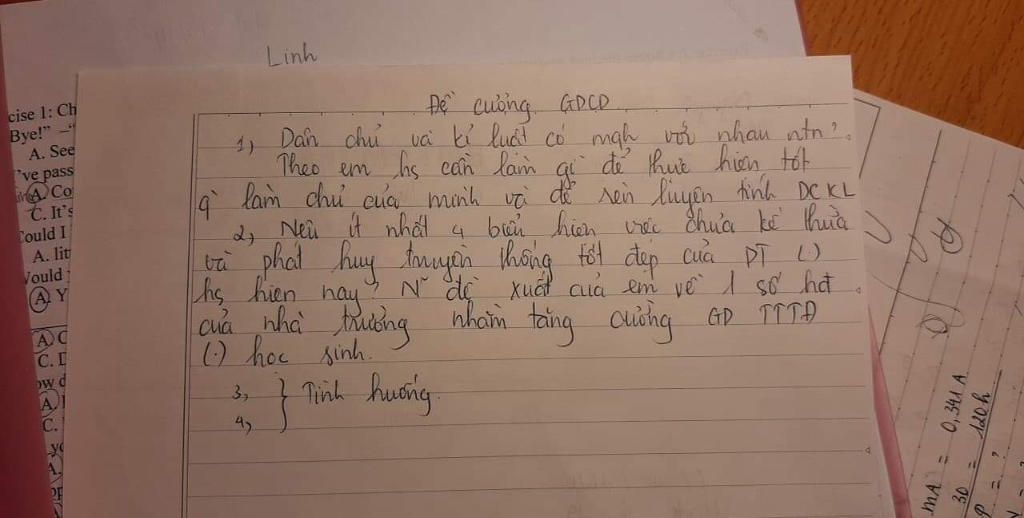 Linh
Đề cường GDCD
1, Dân chủ và kỉ luật có mqh với nhau ntn?
Theo em hs cần làm gì để thực hiện tốt
q` làm chủ của mình và để rèn luyện tính DCKL
2, Nêu ít nhất 4 biểu hiện việc chưa kế thừa
và phát huy truyền thống tốt đẹp của DT (.)
hs hiện nay? N~ đề xuất của em về 1 số hđ
của nhà trường nhằm tăng cường GD TTTĐ
(.) học sinh.
3, } Tình huống.
4,
cise 1: Ch
Bye!" –
A. See
've pass
A. Co
C. It's
Could I
A. lit
Would
A Y
A C
C. D
ow d
A
C.
A.
mA = 0,341A
30 = 120h
P = ?